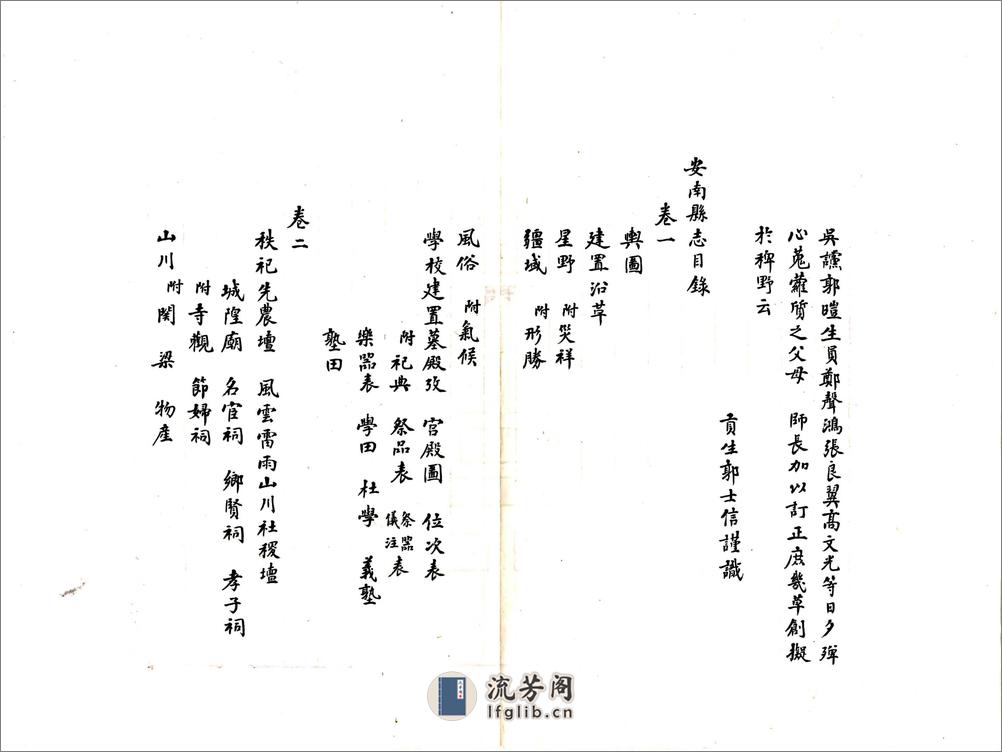 吳讜郭暟生員鄭聲鴻張良翼高文光等日夕殫
心蒐蘿質之父母　師長加以訂正庶幾草創擬
於稗野云
貢生郭士信謹識
安南縣志目錄
卷一
輿圖
建置沿革
星野　附災祥
疆域　附形勝
風俗　附氣候
學校建置墓殿攷　宮殿圖　位次表
附祀典　祭品表　祭器儀注表
樂器表　學田　社學　義塾
塾田
卷二
秩祀先農壇　風雲雷雨山川社稷壇
城隍廟　名宦祠　鄉賢祠　孝子祠
附寺觀　節婦祠
山川　附関　梁　物產
流芳阁
lfglib.cn